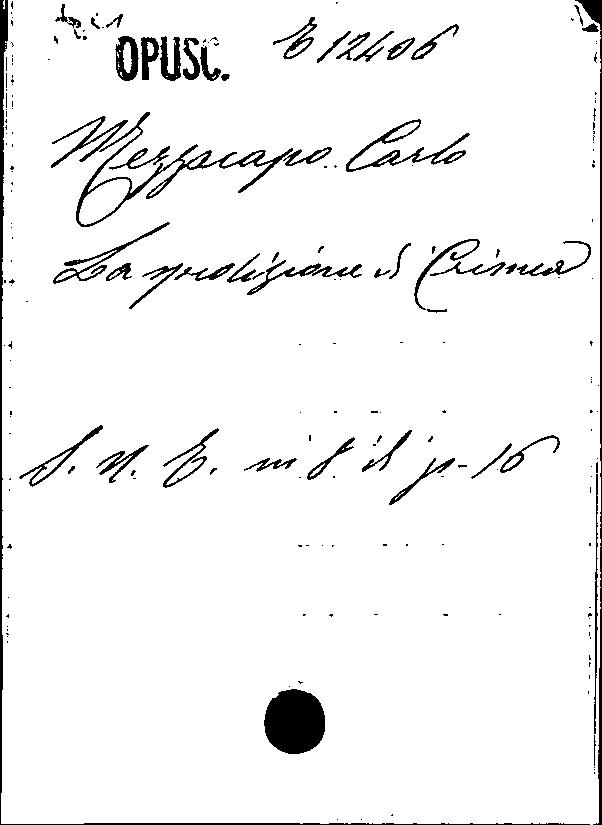 OPUSC. E 12406
Mezzacapo Carlo
La spedizione di Crimea
S. N. E. in 8 di p. 16